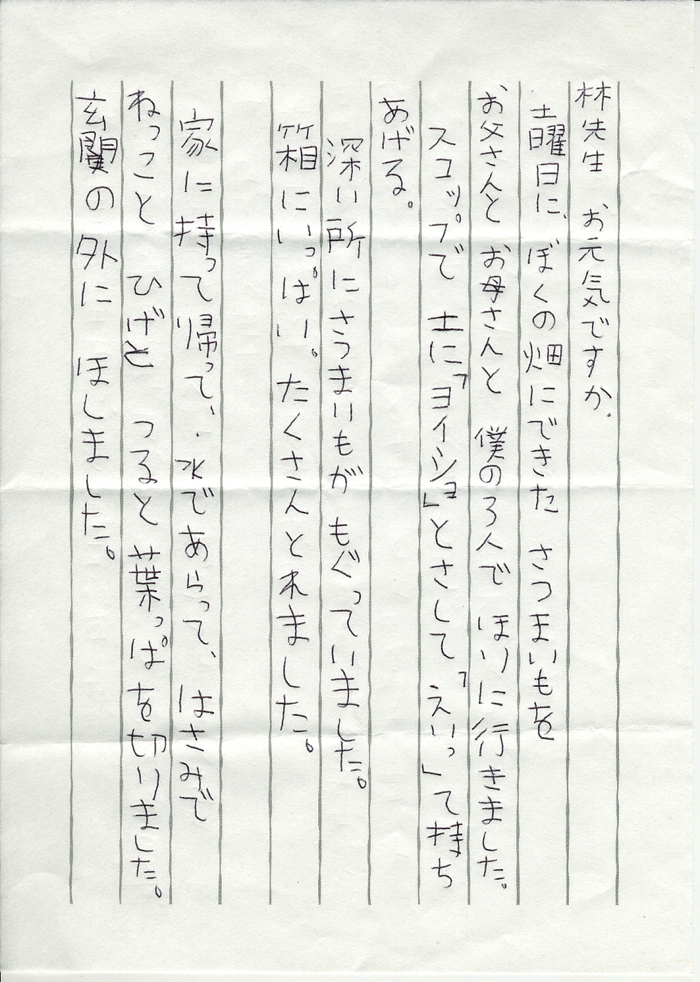 林先生 お元気ですか.
土曜日に、ぼくの畑にできた さつまいもを
お父さんと お母さんと 僕の3人で ほりに行きました。
スコップで 土に「ヨイショ」とさして「えいっ」て持ち
あげる。
深い所にさつまいもが もぐっていました。
箱にいっぱい。たくさんとれました。
家に持って帰って、水であらって、はさみで
ねっこと ひげと つると葉っぱを切りました。
玄関の外に ほしました。